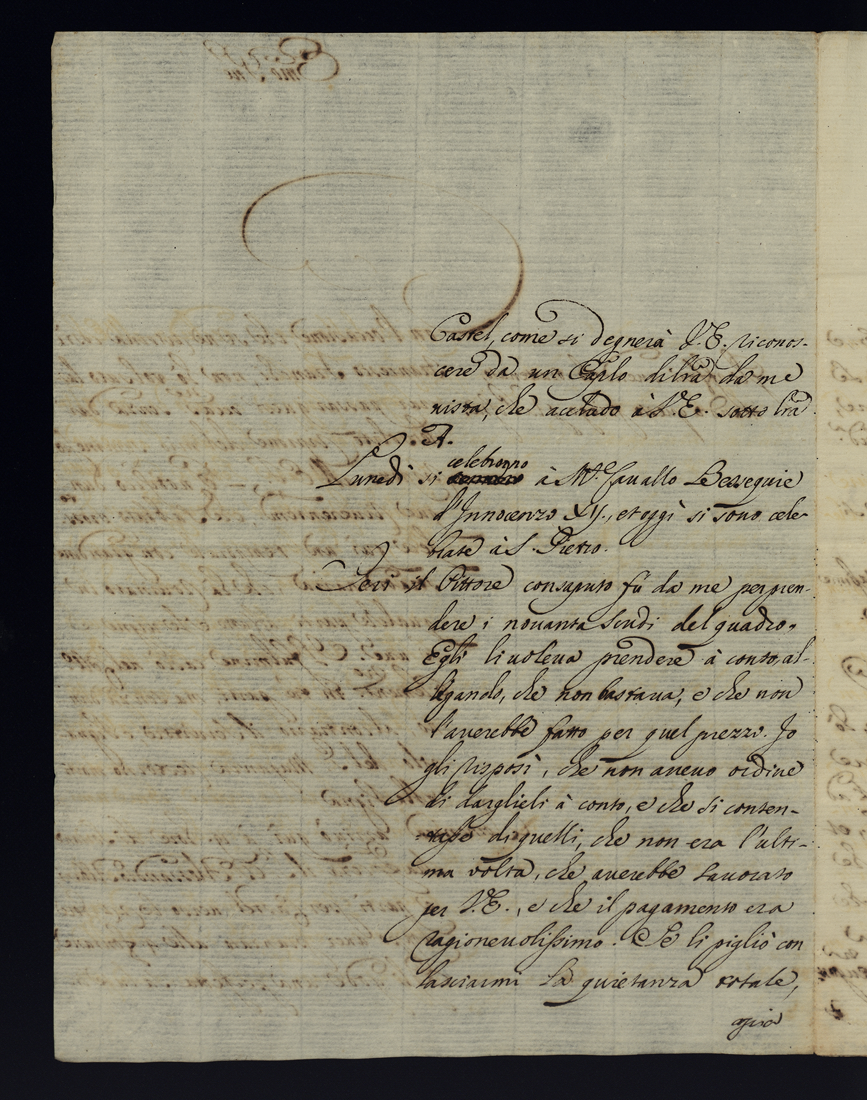 Castel, come si degnerà V.E. riconos-
cere da un Cap.lo di lr̃a da me
vista, che acchiudo à V.E. sotto lr̃a
A.
Lunedì si celebrorno à M.te Cavallo l'esequie
d'Innocenzo XII, et oggi si sono cele-
brate à S. Pietro.
Ieri il Pittore consaputo fù da me per pren-
dere i novanta scudi del quadro.
Egli li voleva prendere à conto, al-
legando, che non bastava, e che non
l'averebbe fatto per quel prezzo. Io
gli risposi, che non avevo ordine
di darglieli à conto, e che si conten-
tasse di quelli, che non era l'ulti-
ma volta, che averebbe lavorato
per V.E., e che il pagamento era
ragionevolissimo. Se li pigliò con
lasciarmi la quietanza totale,